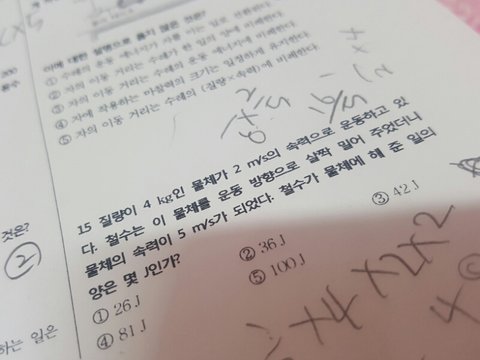 300
라에 대한 설명으로 옳지 않은 것은?
① 수레의 운동 에너지가 자를 미는 일로 전환된다.
② 자의 이동 거리는 수레가 한 일의 양에 비례한다.
③ 자의 이동 거리는 수레의 운동 에너지에 비례한다.
④ 자에 작용하는 마찰력의 크기는 일정하게 유지한다.
⑤ 자의 이동 거리는 수레의 (질량×속력)에 비례한다.
15 질량이 4 kg인 물체가 2 m/s의 속력으로 운동하고 있
다. 철수는 이 물체를 운동 방향으로 살짝 밀어 주었더니
물체의 속력이 5 m/s가 되었다. 철수가 물체에 해 준 일의
양은 몇 J인가?
① 26 J
② 36 J
③ 42 J
④ 81 J
⑤ 100 J
것은?
②
하는 일은